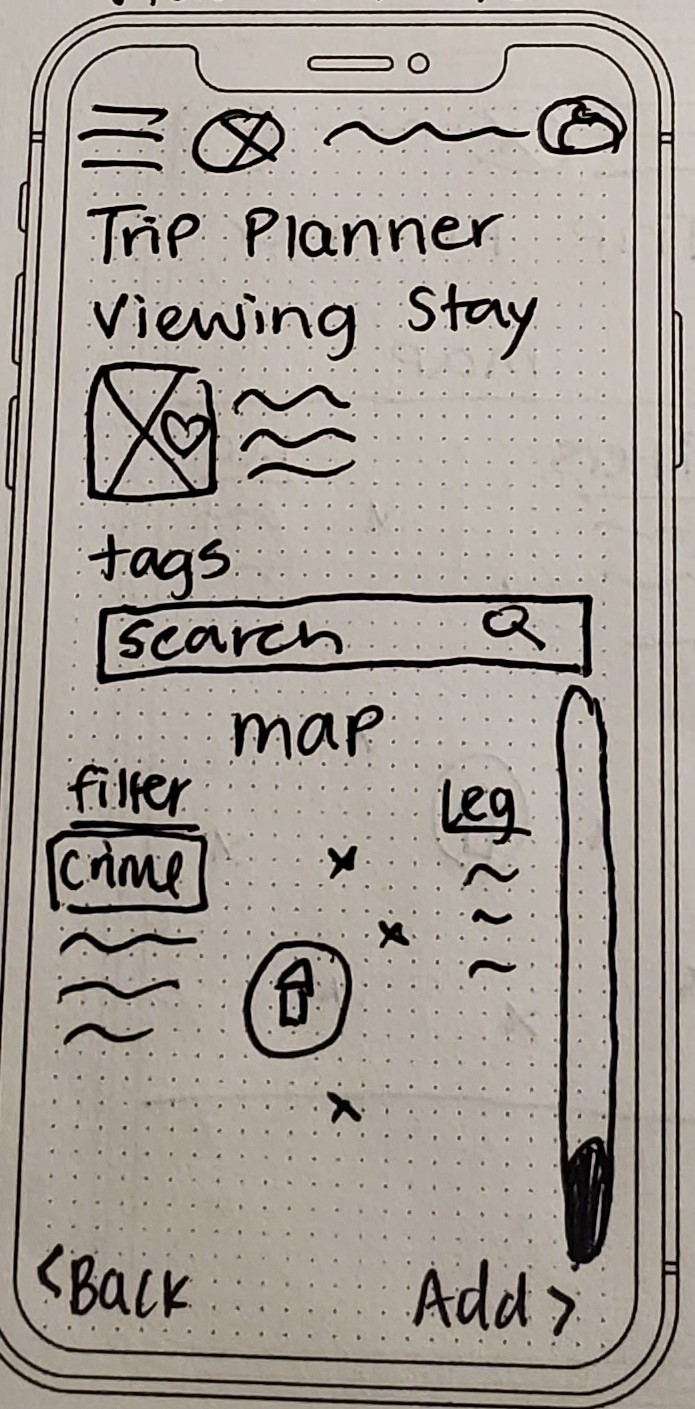 Trip Planner
Viewing Stay
tags
search
map
filter
Leg
crime
<Back
Add >